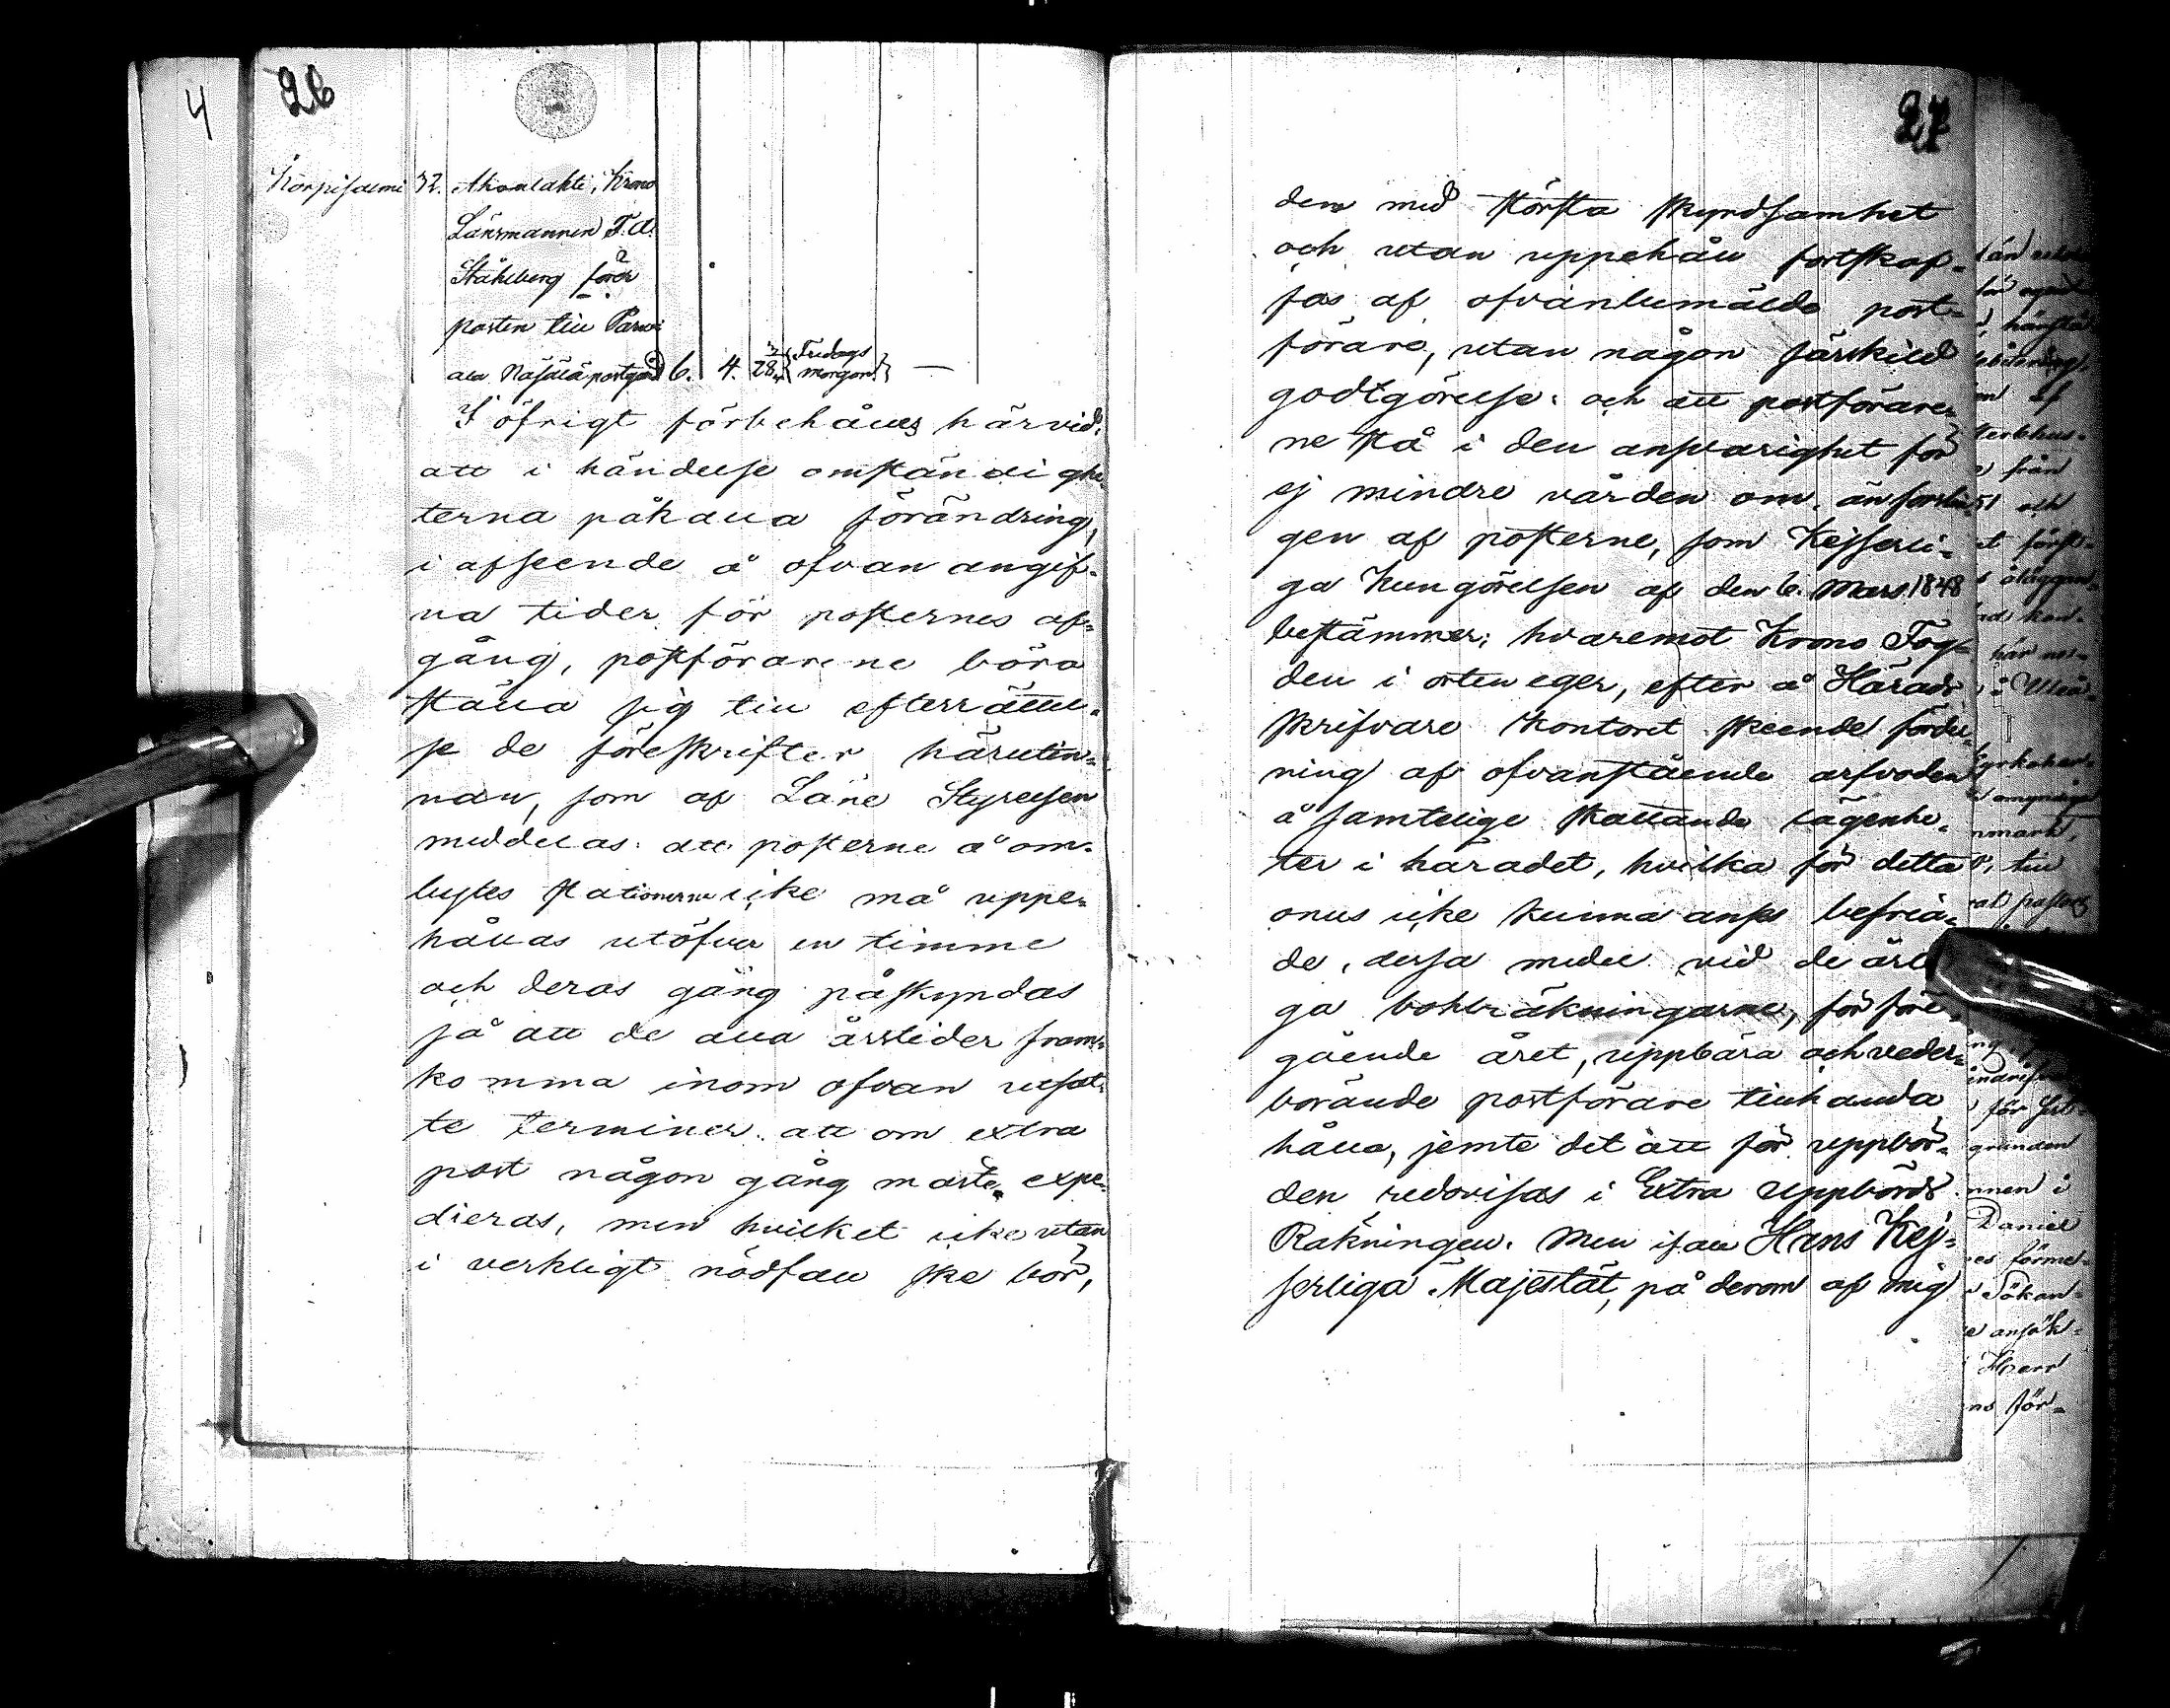 4
26
Korpisalmi 32. Ahonlahti, Krono
Länsmannen F. A.
Ståhlberg förer
posten till
ala Näsälä postgård 6. 4. 28 3/4 Fredags morgon —
I öfrigt förbehålles härvid:
att i händelse omständighe-
terna påkalla förändring,
i afseende å ofvan angif-
na tider för posternes af-
gång, postförarene böra
ställa sig till efterrättel-
se de föreskrifter härutin-
nan, som af Läne Styrelsen
meddelas: att posterne å om-
bytes stationerne icke må uppe-
hållas utöfver en timme
och deras gång påskyndas
så att de alla årstider fram-
komma inom ofvan utsat-
te terminer: att om extra
post någon gång måste expe-
dieras, men hvilket icke utan
i verkligt nödfall ske bör,
27
den med största skyndsamhet
och utan uppehåll fortskaf-
fas af ofvanbemälde post-
förare, utan någon särskild
godtgörelse: och att postförare-
ne stå i den ansvarighet för
ej mindre vården om, än forslin-
gen af posterne, som Kejserli-
ga Kungörelsen af den 6. Mars 1848
bestämmer; hvaremot Krono Fog-
den i orten eger, efter å Härads
skrifvare Kontoret skeende fördel-
ning af ofvanstående arfvoden
å samtelige skattande lägenhe-
ter i häradet, hvilka för detta
onus icke kunna anses befria-
de, dessa medel vid de årli-
ga bohkräkningarne, för före-
gående året, uppbära och veder-
börande postförare tillhanda
hålla, jemte det att för uppbör-
den redovisas i Extra Uppbörds
Räkningen. Men ifall Hans Kej-
serliga Majestät, på derom af mig
än
hänskö
af
sterbhus-
från
51 och
ålaggan-
här ne-
nmark,
till
för
grunden
nnen i
Daniel
es förmel-
Sökan-
e ansök-
Herr
ns för-